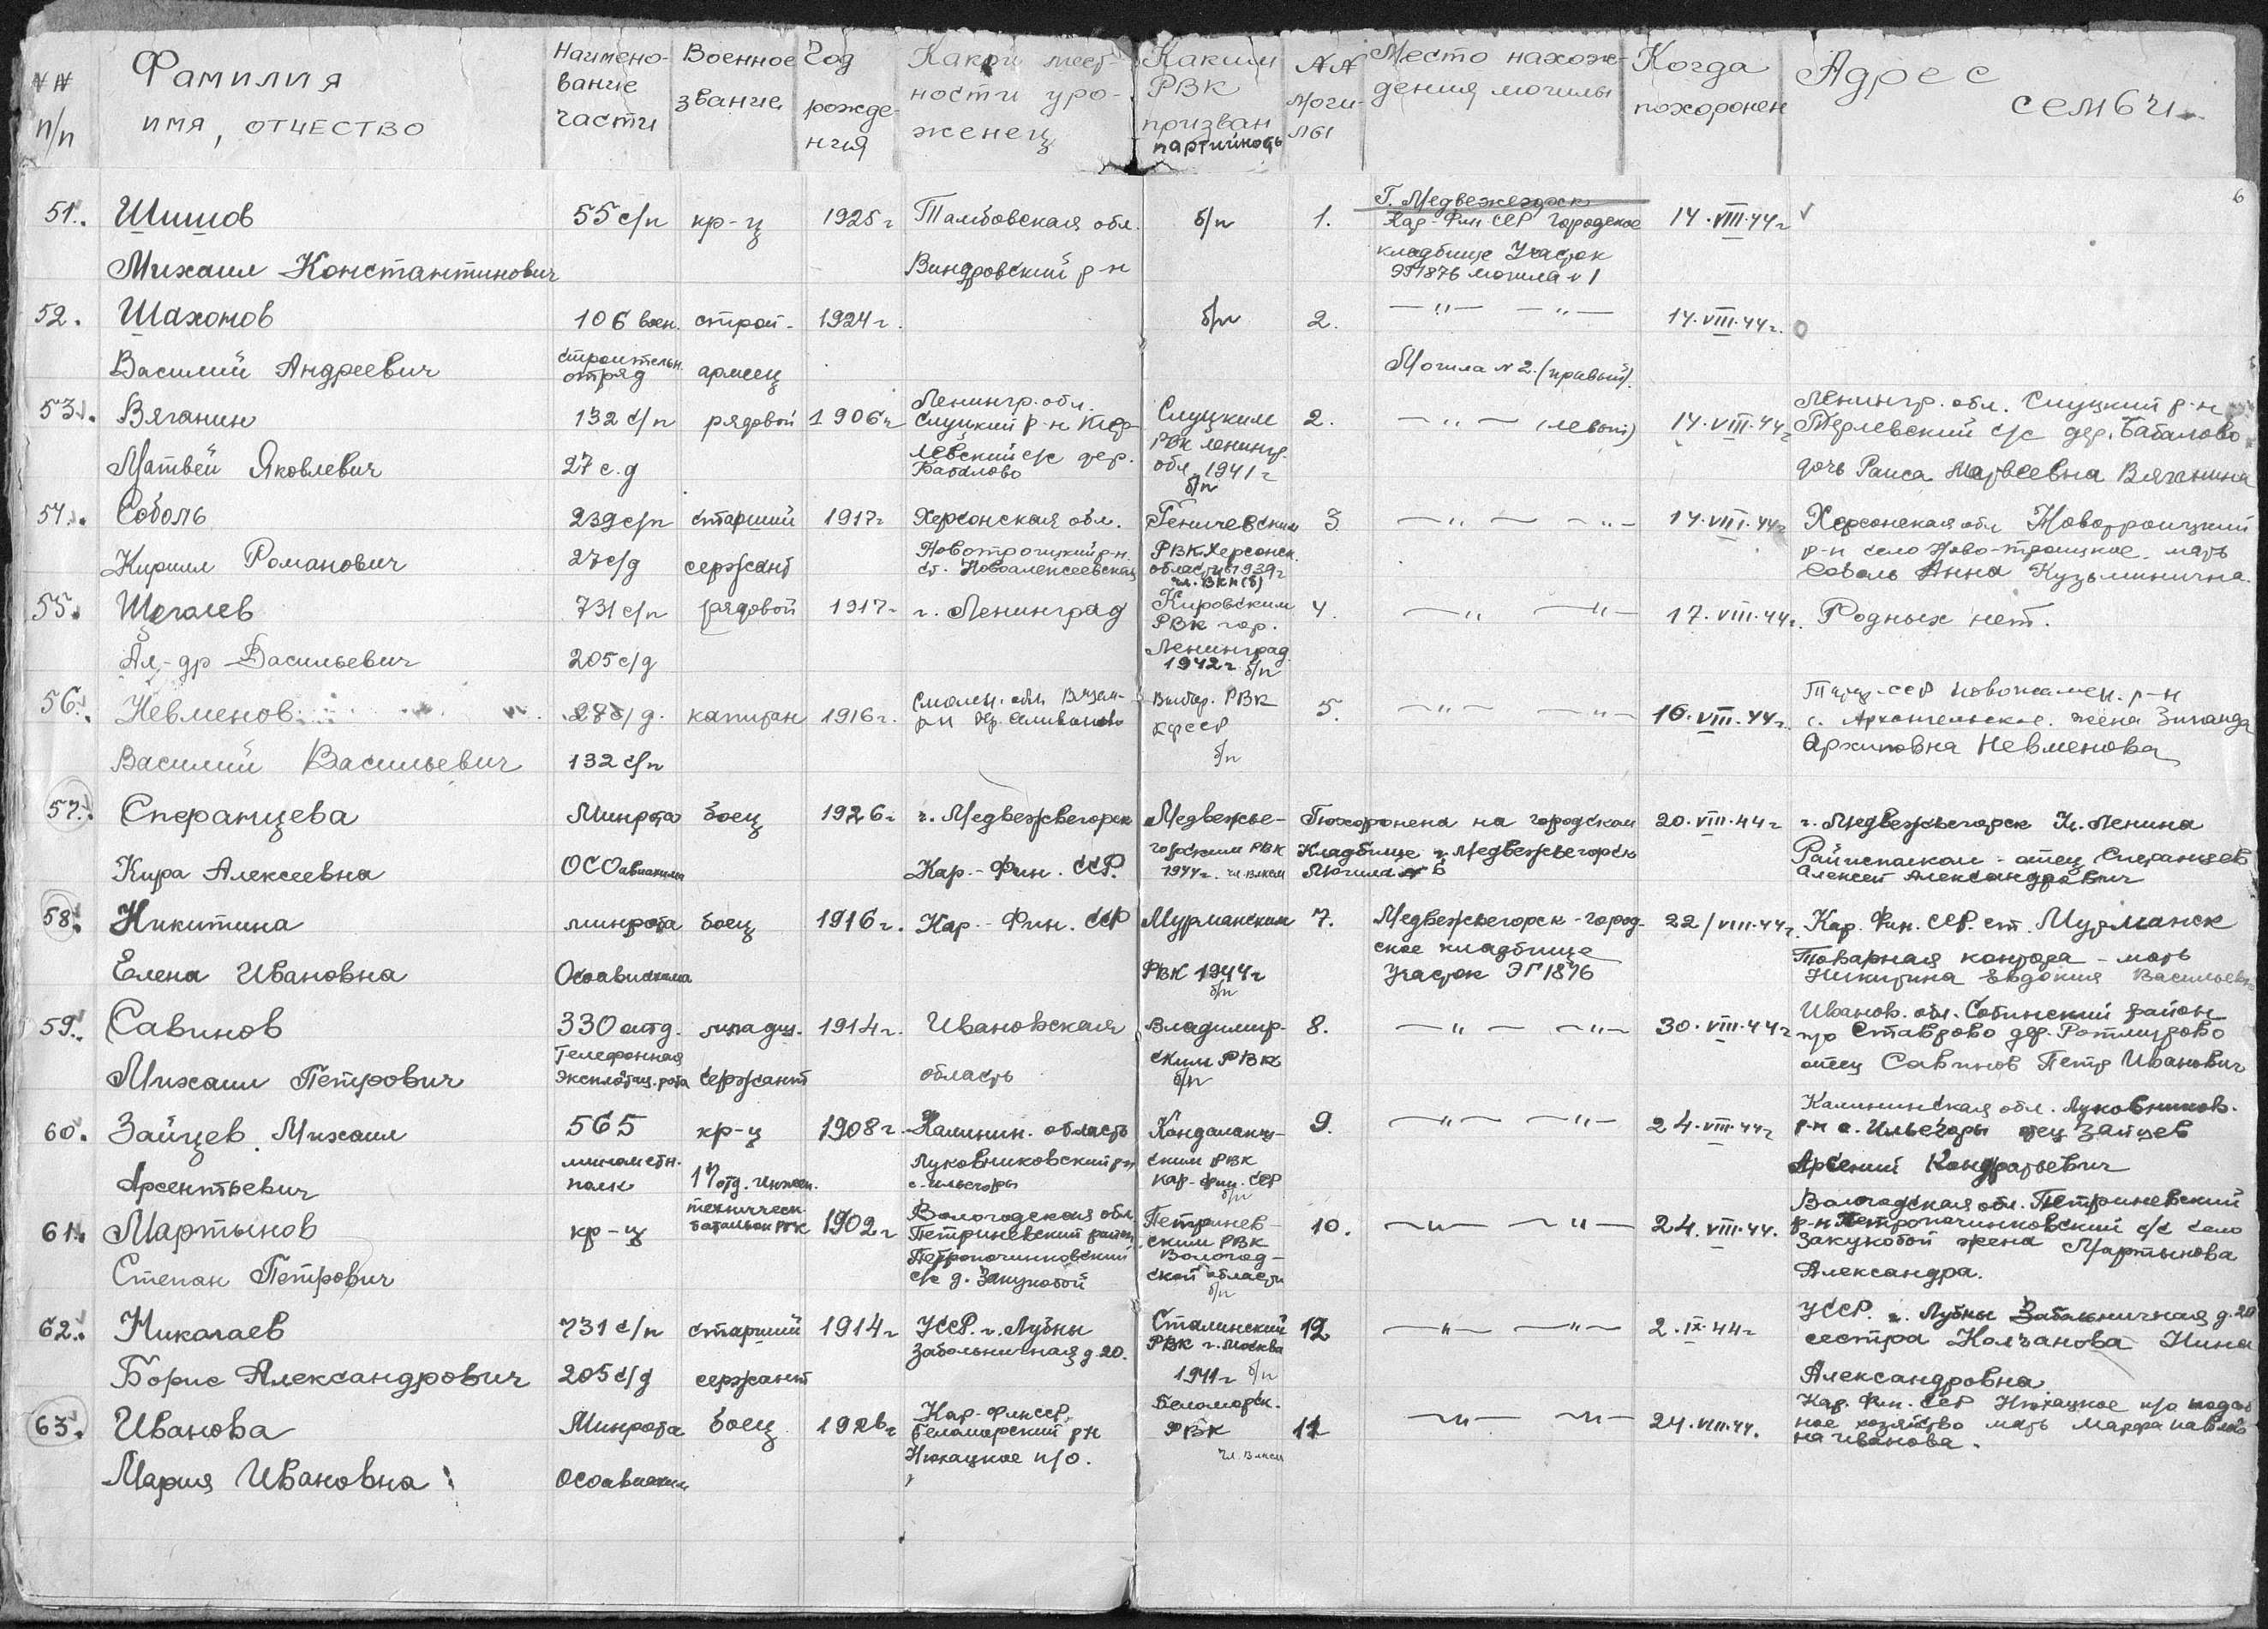 №№ п/п
Фамилия
имя, отчество
Наимено-
вание
части
Военное
звание
Год
рожде-
ния
Какой мест-
ности уро-
женец
Каким
РВК
призван
партийность
№№
моги-
лы
Место нахож-
дения могилы
Когда
похоронен
Адрес
семьи
6
51. Шишов 55 с/п кр-ц 1925 г Тамбовская обл. б/п 1. Г. Медвежегорск 14.VIII.44 г
Кар-Фин. ССР Городское
Михаил Константинович р-н кладбище Участок
ЭГ1876 могила № 1
52. Шахомов 106 воен. строи- 1924 г. б/п 2. —"— —"— 14.VIII.44 г.
Василий Андреевич строительн. армеец Могила № 2. (правый).
отряд
53. Вяганин 132 с/п рядовой 1906 г Ленингр. обл. Слуцким 2. —"— (левый) 14.VIII.44 г Ленингр. обл. Слуцкий р-н
Слуцкий р-н Тер- РВК Ленингр. Терлевский с/с дер. Бабалово
Матвей Яковлевич 27 с.д левский с/с дер. обл. 1941 г дочь Раиса Матвеевна Вяганина
Бабалово б/п
54. Соболь 239 с/п старший 1917 г Херсонская обл. Геническим 3 —"— —"— 14.VIII.44 г Херсонская обл Новотроицкий
Кирилл Романович 27 с/д сержант Новотроицкий р-н. РВК Херсонск. р-н село Ново-троицкое. мать
ст. Новоалексеевская области 1939 г Соболь Анна Кузьминична.
чл. ВКП(б)
55. Щеголев 731 с/п рядовой 1917 г г. Ленинград Кировским 4. —"— —"— 17.VIII.44 г. Родных нет.
РВК гор.
Ал-др Васильевич 205 с/д Ленинград
1942 г. б/п
56. Невменов 28 с/д. капитан 1916 г. Смолен. обл. Вязем- Выборг. РВК 5. —"— —"— 16.VIII.44 г. р-н
р-н КФССР с. Архангельское. жена Зинаида
Василий Васильевич 132 с/п б/п Архиповна Невменова
57. Сперанцева Минрота боец 1926 г г. Медвежьегорск Медвежье- Похоронена на городском 20.VIII.44 г г. Медвежьегорск Ул. Ленина
Кира Алексеевна ОСОавиахима Кар.-Фин. ССР. горским РВК Кладбище г. Медвежьегорск Райисполком - отец Сперанцев
1944 г. чл ВЛКСМ Могила № 6 Алексей Александрович
58. Никитина минрота боец 1916 г. Кар.-Фин. ССР Мурманским 7. Медвежьегорск - город- 22/VIII.44 г. Кар. Фин. ССР. ст. Мурманск
ское кладбище Товарная контора - мать
Елена Ивановна Осоавиахима РВК 1944 г Участок ЭГ1876 Никитина Евдокия Васильевна
б/п
59. Савинов 330 отд. младш. 1914 г. Ивановская Владимир- 8. —"— —"— 30.VIII.44 г Иванов. обл. Собинский район
Телефонная ским РВК п/о Ставрово дер. Ратмирово
Михаил Петрович эксплотац. рота сержант область б/п отец Савинов Петр Иванович
60. Зайцев Михаил 565 кр-ц 1908 г. Калинин. область Кандалакш- 9. —"— —"— 24.VIII.44 г Калининская обл. Луковников.
минометн. Луковниковский р-н ским РВК р-н с. Ильегоры отец Зайцев
Арсентьевич полк с. Ильегоры Кар-Фин. ССР Арсений Кондратьевич
б/п
61. Мартынов 17 отд. инжен. кр-ц 1902 г Вологодская обл. Петринев- 10. —"— —"— 24.VIII.44. Вологодская обл. Петриневский
техническ. Петриневский район ским РВК р-н Петропочинковский с/с село
батальон РГК Петропочинковский Вологод- Закукобой жена Мартынова
Степан Петрович с/с д. Закукобой ской области Александра.
б/п
62. Николаев 731 с/п старший 1914 г УССР. г. Лубны Сталинский 12 —"— —"— 2.IX.44 г УССР. г. Лубны Забольничная д. 20
Забольничная д. 20. РВК г. Москва сестра Колчанова Нина
Борис Александрович 205 с/д сержант 1941 г б/п Александровна
63. Иванова Минрота боец 1926 г Кар-Фин ССР Беломорск. 11 —"— —"— 24.VIII.44. Кар. Фин. ССР Нюхацкое п/о
Беломорский р-н РВК ное хозяйство мать Марфа Павлов-
Мария Ивановна ОСОавиахим Нюхацкое п/о. чл ВЛКСМ на Иванова.